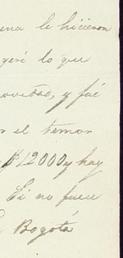 una le hicieron
geré lo que
avedad, y fué
r el temor
$12000 y hay
Si no pues
Bogotá